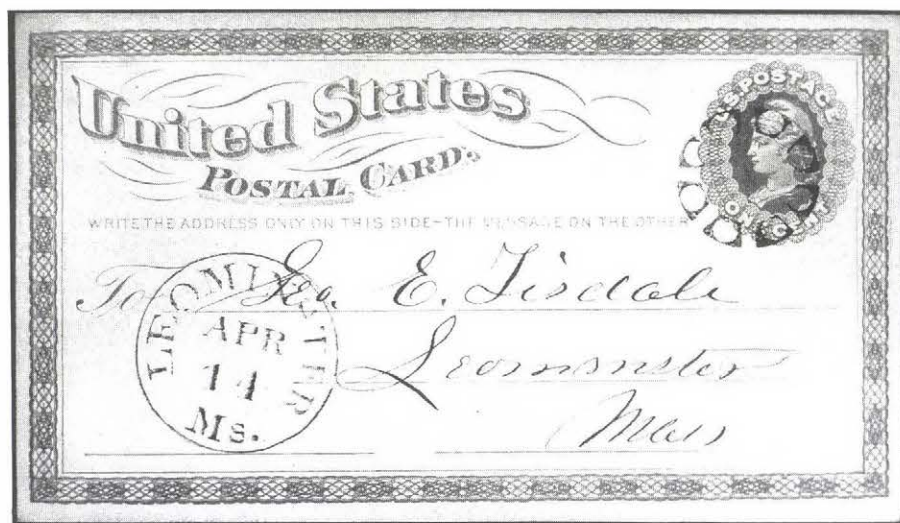 United States
POSTAL CARD.
U.S. POSTAGE
ONE CENT
WRITE THE ADDRESS ONLY ON THIS SIDE-THE MESSAGE ON THE OTHER
To Geo. E. Tisdale
Leominster
Mass
LEOMINSTER
APR
14
Ms.